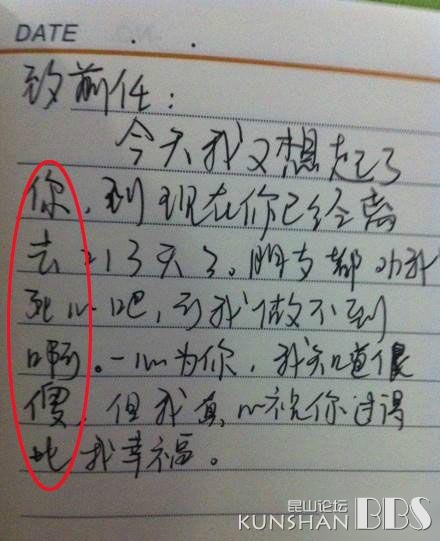 DATE . .
致前任：
今天我又想起了
你，到现在你已经离
去213天了。朋友都劝我
死心吧，可我做不到
啊。一心为你，我知道很
傻，但我真心祝你过得
比我幸福。
昆山论坛
KUNSHAN BBS